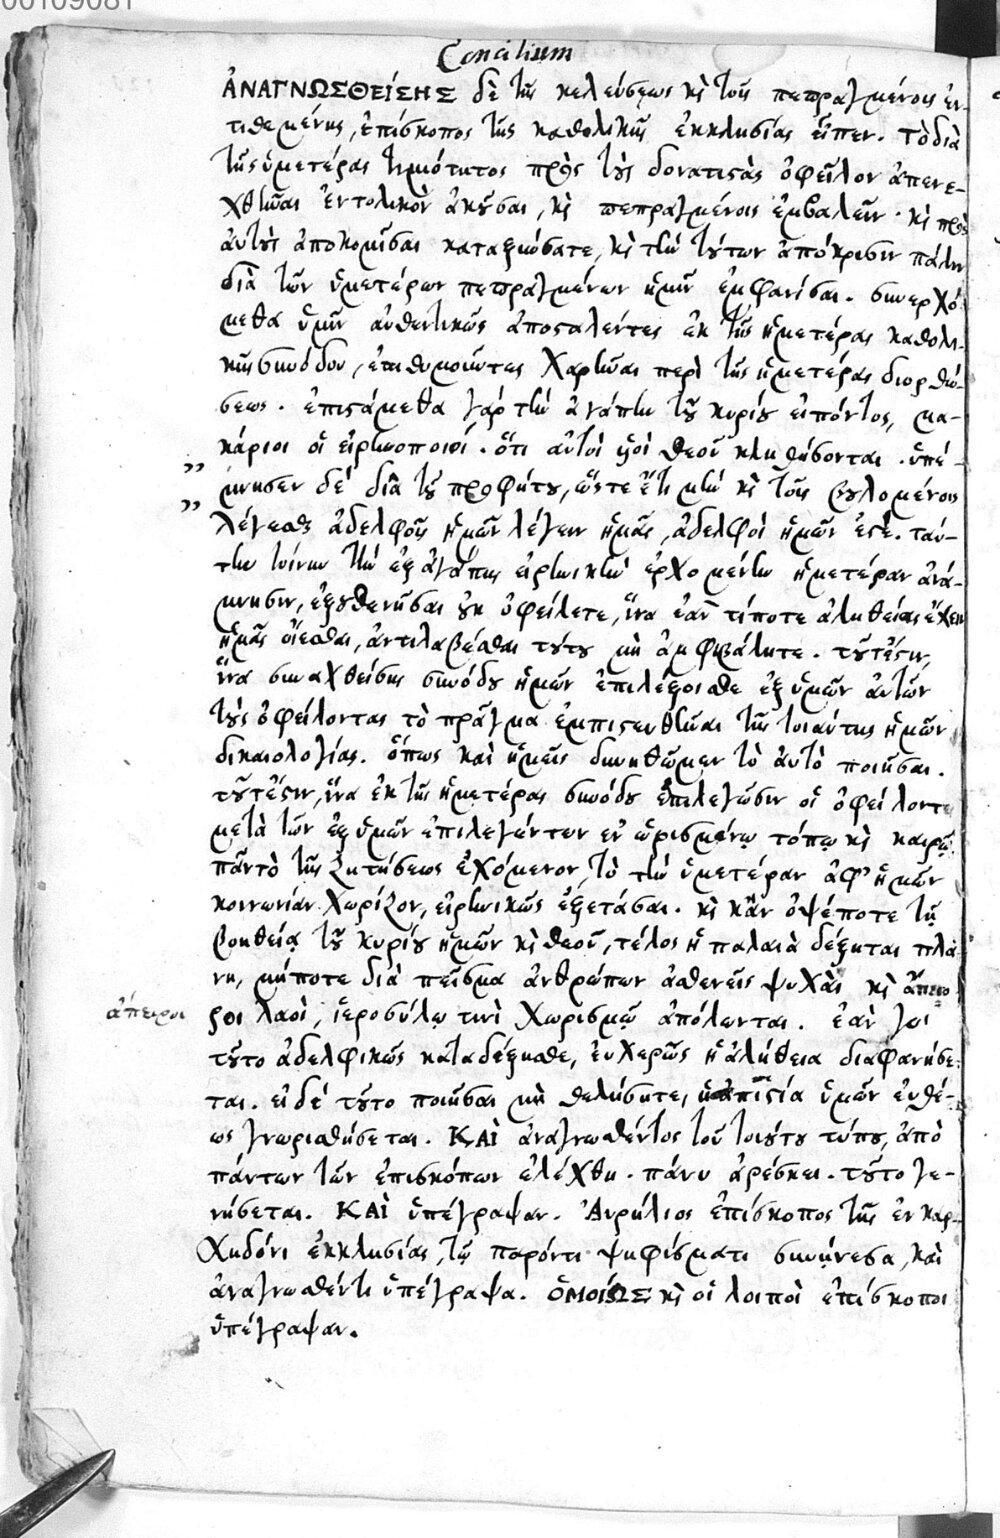 00109081
Concilium
ἈΝΑΓΝΩΣΘΕΊΣΗΣ δὲ τῆς κελεύσεως κὶ τοῖς πεπραγμένοις ἐν-
τιθεμένης, ἐπίσκοπος τῆς καθολικῆς ἐκκλησίας εἶπεν. τὸ διὰ
τῆς ὑμετέρας τιμιότητος πρὸς τοὺς δονατιστὰς ὀφεῖλον ἀπενε-
χθῆναι ἐντολικὸν ἀκοῦσαι, κὶ πεπραγμένοις ἐμβαλεῖν. κὶ πρὸς
αὐτοὺς ἀποκομίσαι καταξιώσατε, κὶ τὴν τούτων ἀπόκρισιν πάλιν
διὰ τῶν ὑμετέρων πεπραγμένων ἡμῖν ἐμφανίσαι. συνερχό-
μεθα ὑμῖν αὐθεντικῶς ἀποσταλέντες ἐκ τῆς ἡμετέρας καθολι-
κῆς συνόδου, ἐπιθυμοῦντες χαρῆναι περὶ τῆς ἡμετέρας διορθώ-
σεως. ἐπιστάμεθα γάρ τὴν ἀγάπην τοῦ κυρίου εἰπόντος, μα-
κάριοι οἱ εἰρηνοποιοί. ὅτι αὐτοὶ υἱοὶ θεοῦ κληθήσονται. ὑπέ-
μνησεν δέ διὰ τοῦ προφήτου, ὥστε ἔτι μὴν κὶ τοῖς βουλομένοις
λέγεσθαι ἀδελφοῖς ἡμῶν λέγειν ἡμᾶς, ἀδελφοὶ ἡμῶν ἐστέ. ταύ-
την τοίνυν τὴν ἐξ ἀγάπης εἰρηνικὴν ἐρχομένην ἡμετέραν ἀνά-
μνησιν, ἐξουθενῆσαι οὐκ ὀφείλετε, ἵνα ἐάν τίποτε ἀληθείας ἔχειν
ἡμᾶς οἴεσθαι, ἀντιλαβέσθαι τούτου μὴ ἀμφιβάλητε. τοῦτέστιν,
ἵνα συναχθείσης συνόδου ἡμῶν ἐπιλέξοισθε ἐξ ὑμῶν αὐτῶν
τοὺς ὀφείλοντας τὸ πρᾶγμα ἐμπιστευθῆναι τῆς τοιαύτης ἡμῶν
δικαιολογίας. ὅπως καὶ ἡμεῖς δυνηθῶμεν τὸ αὐτὸ ποιῆσαι.
τοῦτέστιν, ἵνα ἐκ τῆς ἡμετέρας συνόδου ἐπιλεγῶσιν οἱ ὀφείλοντες
μετὰ τῶν ἐξ ὑμῶν ἐπιλεγέντων ἐν ὡρισμένῳ τόπῳ κὶ καιρῷ.
πᾶν τὸ τῆς ζητήσεως ἐχόμενον, τὸ τὴν ὑμετέραν ἀφ' ἡμῶν
κοινωνίαν χωρίζον, εἰρηνικῶς ἐξετάσαι. κὶ κἂν ὀψέποτε τῇ
βοηθείᾳ τοῦ κυρίου ἡμῶν κὶ θεοῦ, τέλος ἡ παλαιὰ δέξηται πλά-
νη, μήποτε διὰ πεῖσμα ἀνθρώπων ἀσθενεῖς ψυχαὶ κὶ ἄπει-
ροι λαοὶ, ἱεροσύλῳ τινὶ χωρισμῷ ἀπόλωνται. ἐὰν γὰρ
ἄπειροι
τοῦτο ἀδελφικῶς καταδέξησθε, εὐχερῶς ἡ ἀλήθεια διαφανήσε-
ται. εἰ δέ τοῦτο ποιῆσαι μὴ θελήσητε, ἡ ἀπιστία ὑμῶν εὐθέ-
ως γνωρισθήσεται. ΚΑῚ ἀναγνωσθέντος τοῦ τοιούτου τύπου, ἀπὸ
πάντων τῶν ἐπισκόπων ἐλέχθη. πάνυ ἀρέσκει. τοῦτο γε-
νήσεται. ΚΑῚ ὑπέγραψαν. Ἀυρήλιος ἐπίσκοπος τῆς ἐν καρ-
χηδόνι ἐκκλησίας, τῷ παρόντι ψηφίσματι συνῄνεσα, καὶ
ἀναγνωσθέντι ὑπέγραψα. ὉΜΟΊΩΣ κὶ οἱ λοιποὶ ἐπίσκοποι
ὑπέγραψαν.